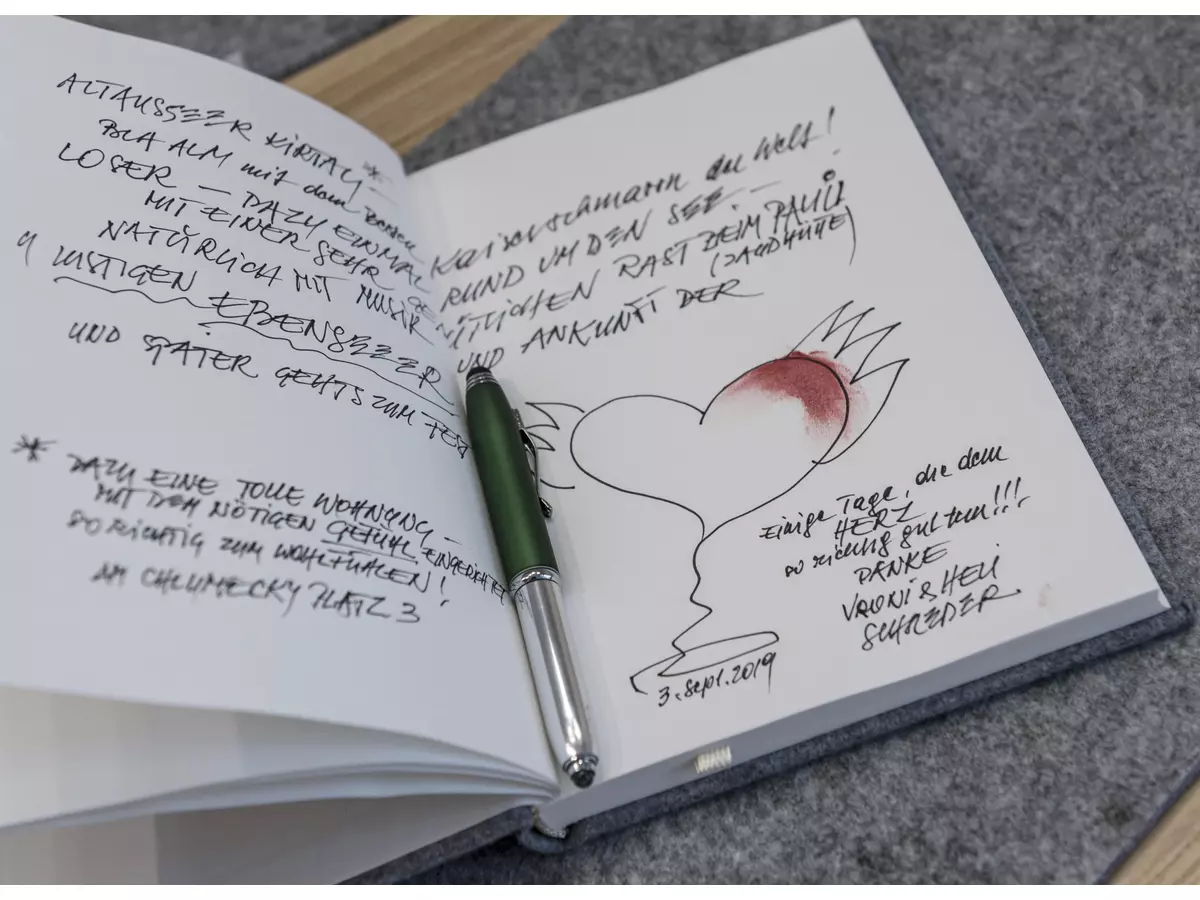 ALTAUSSEER KIRTAG -
BLA ALM mit dem Besten
LOSER - DAZU EINMAL
MIT EINER SEHR GEN
NATÜRLICH MIT MUSIK
LUSTIGEN EBENSEEER
UND SPÄTER GEHTS ZUM
* DAZU EINE TOLLE WOHNUNG -
MIT DEM NÖTIGEN GEFÜHL EINGERICHTET
SO RICHTIG ZUM WOHLFÜHLEN!
AM CHLUMECKY PLATZ 3
Kaiserschmarrn der Welt!
RUND UM DEN SEE. -
ÜTLICHEN RAST BEIM PAULI
(JAGDHÜTTE)
UND ANKUNFT DER
Einige Tage, die dem
HERZ
so richtig gut tun!!!
DANKE
VRONI & HELI
SCHREDER
3. Sept. 2019